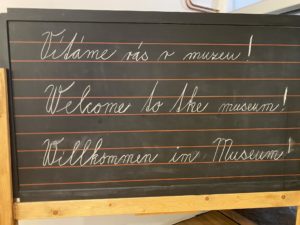 Vítáme vás v muzeu!
Welcome to the museum!
Willkommen im Museum!